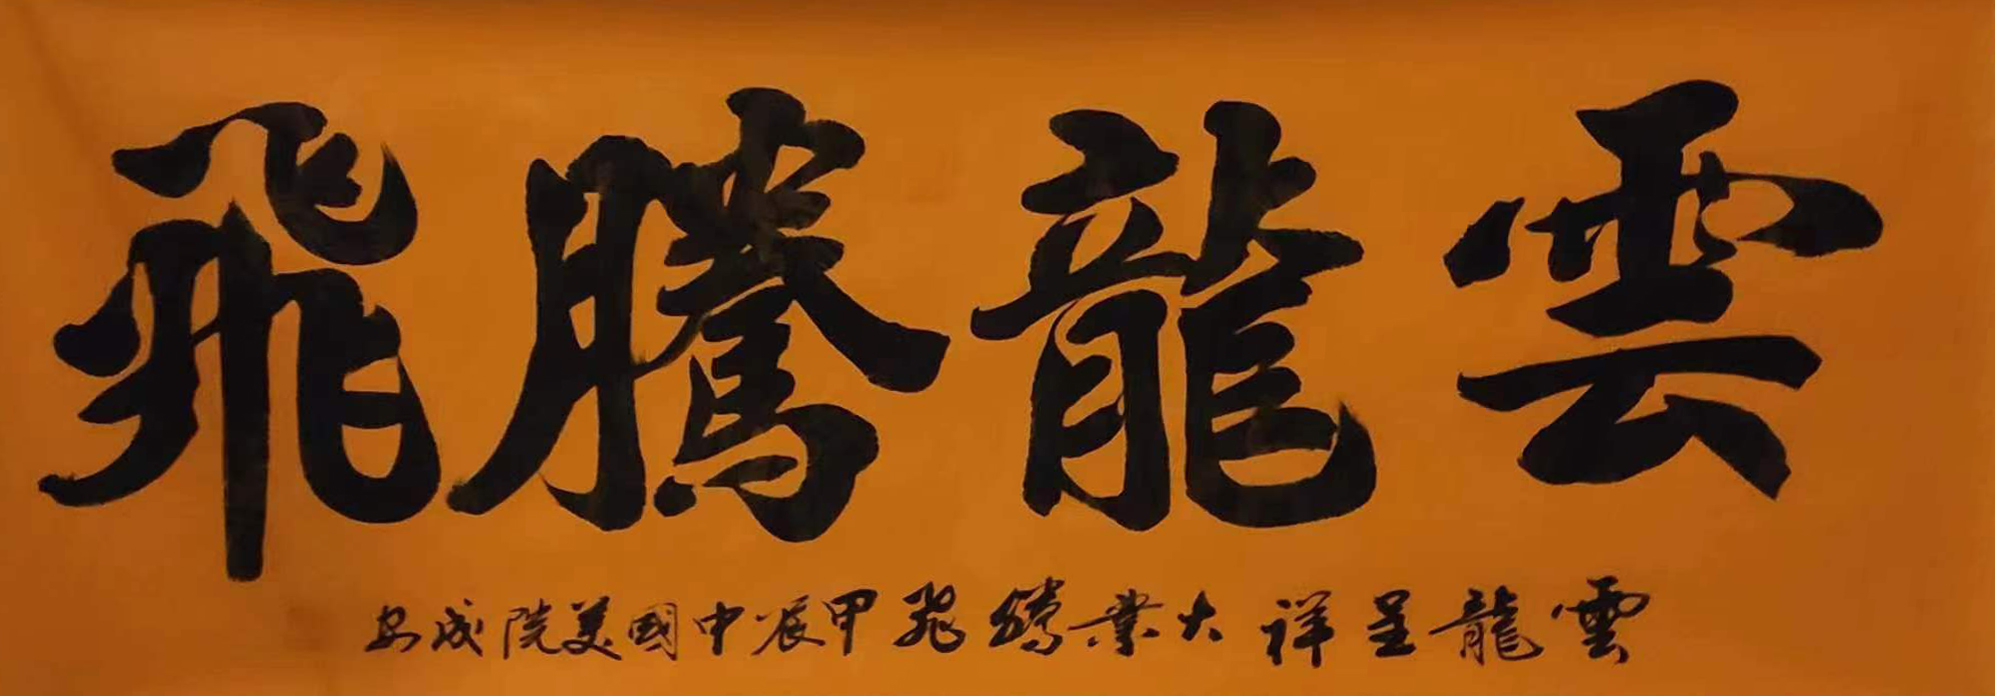 雲龍騰飛
雲龍呈祥大業騰飛甲辰中國美院成安